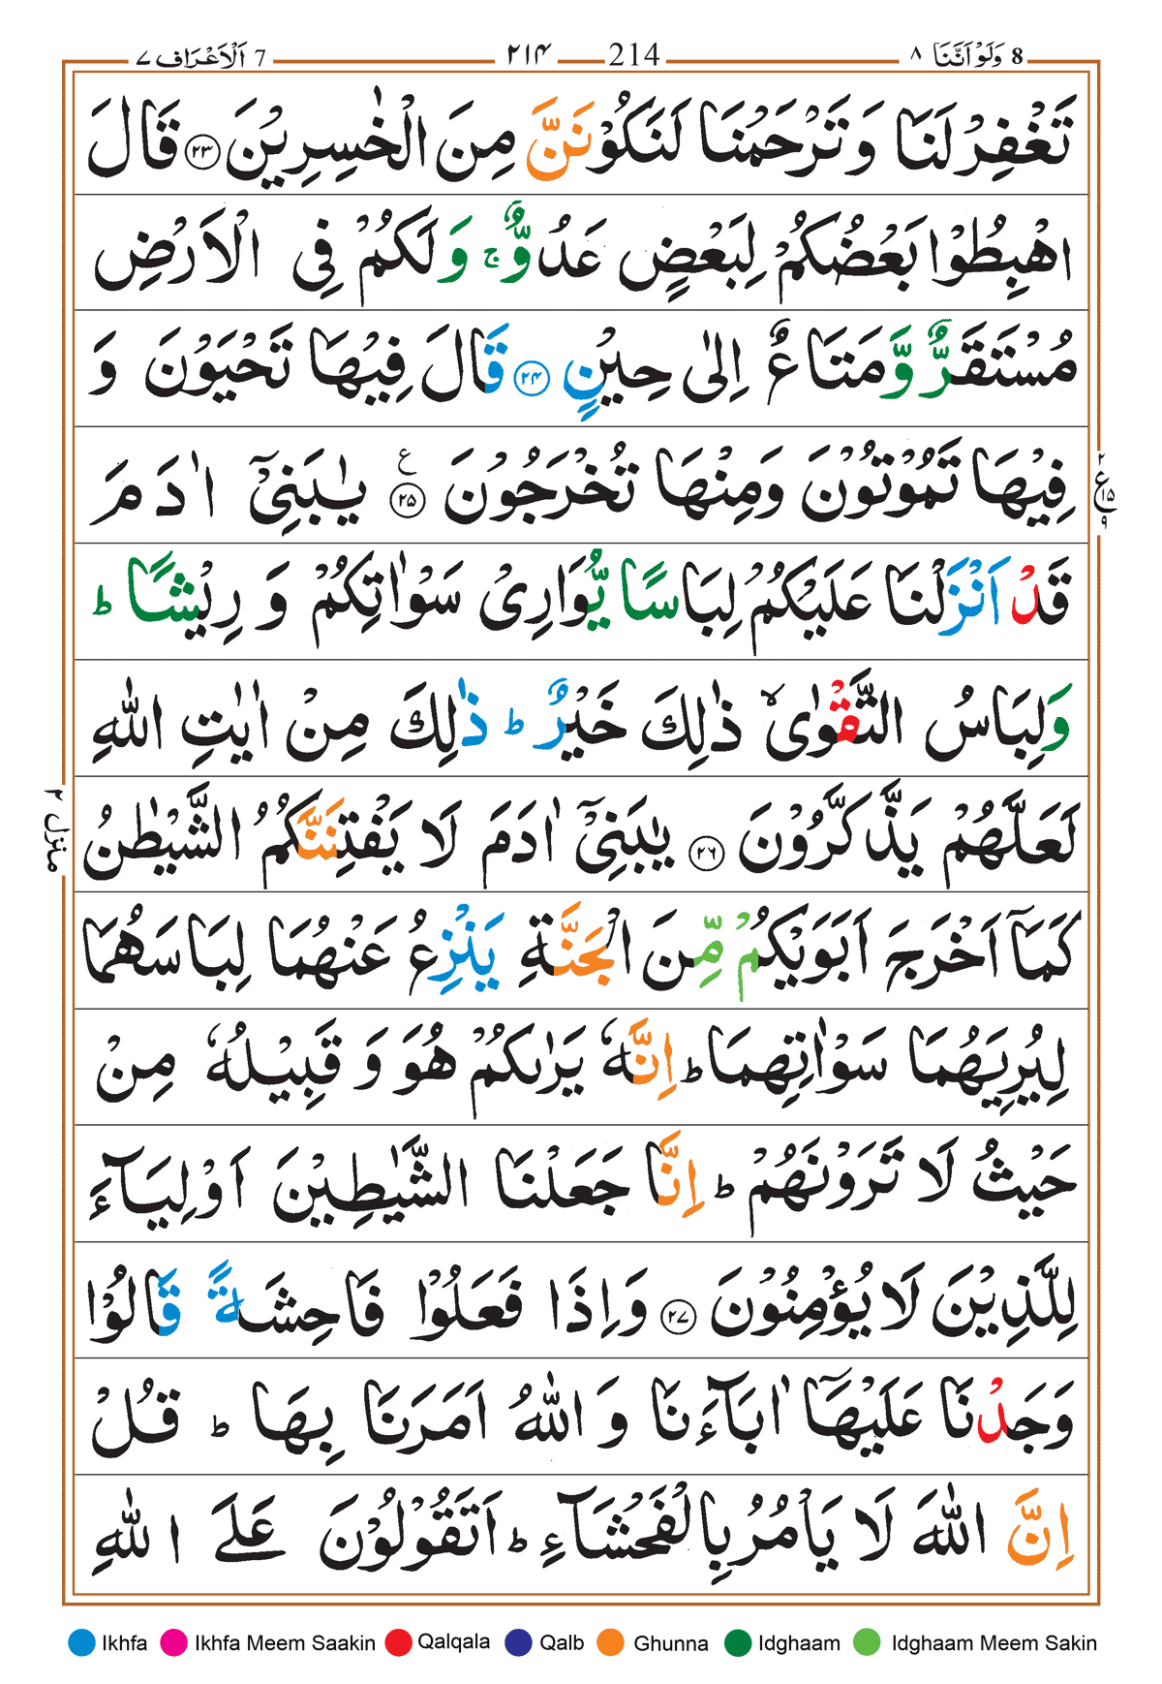 8 وَلَوْ اَنَّنَا ٨ 214 ٢١٤ 7 اَلْاَعْرَاف ٧
تَغْفِرْ لَنَا وَ تَرْحَمْنَا لَنَكُوْنَنَّ مِنَ الْخٰسِرِيْنَ ﴿٢٣﴾ قَالَ
اهْبِطُوْا بَعْضُكُمْ لِبَعْضٍ عَدُوٌّ ۚ وَلَكُمْ فِى الْاَرْضِ
مُسْتَقَرٌّ وَّمَتَاعٌ اِلٰى حِيْنٍ ﴿٢٤﴾ قَالَ فِيْهَا تَحْيَوْنَ وَ
فِيْهَا تَمُوْتُوْنَ وَمِنْهَا تُخْرَجُوْنَ ﴿٢٥﴾ ع يٰبَنِىْۤ اٰدَمَ
٢ ع ١٥ ٩
قَدْ اَنْزَلْنَا عَلَيْكُمْ لِبَاسًا يُّوَارِىْ سَوْاٰتِكُمْ وَ رِيْشًا ؕ
وَلِبَاسُ التَّقْوٰى ۙ ذٰلِكَ خَيْرٌ ؕ ذٰلِكَ مِنْ اٰيٰتِ اللّٰهِ
لَعَلَّهُمْ يَذَّكَّرُوْنَ ﴿٢٦﴾ يٰبَنِىْۤ اٰدَمَ لَا يَفْتِنَنَّكُمُ الشَّيْطٰنُ
منزل ٢
كَمَاۤ اَخْرَجَ اَبَوَيْكُمْ مِّنَ الْجَنَّةِ يَنْزِعُ عَنْهُمَا لِبَاسَهُمَا
لِيُرِيَهُمَا سَوْاٰتِهِمَا ؕ اِنَّهٗ يَرٰىكُمْ هُوَ وَ قَبِيْلُهٗ مِنْ
حَيْثُ لَا تَرَوْنَهُمْ ؕ اِنَّا جَعَلْنَا الشَّيٰطِيْنَ اَوْلِيَآءَ
لِلَّذِيْنَ لَا يُؤْمِنُوْنَ ﴿٢٧﴾ وَاِذَا فَعَلُوْا فَاحِشَةً قَالُوْا
وَجَدْنَا عَلَيْهَاۤ اٰبَآءَنَا وَ اللّٰهُ اَمَرَنَا بِهَا ؕ قُلْ
اِنَّ اللّٰهَ لَا يَاْمُرُ بِالْفَحْشَآءِ ؕ اَتَقُوْلُوْنَ عَلَى اللّٰهِ
Ikhfa Ikhfa Meem Saakin Qalqala Qalb Ghunna Idghaam Idghaam Meem Sakin